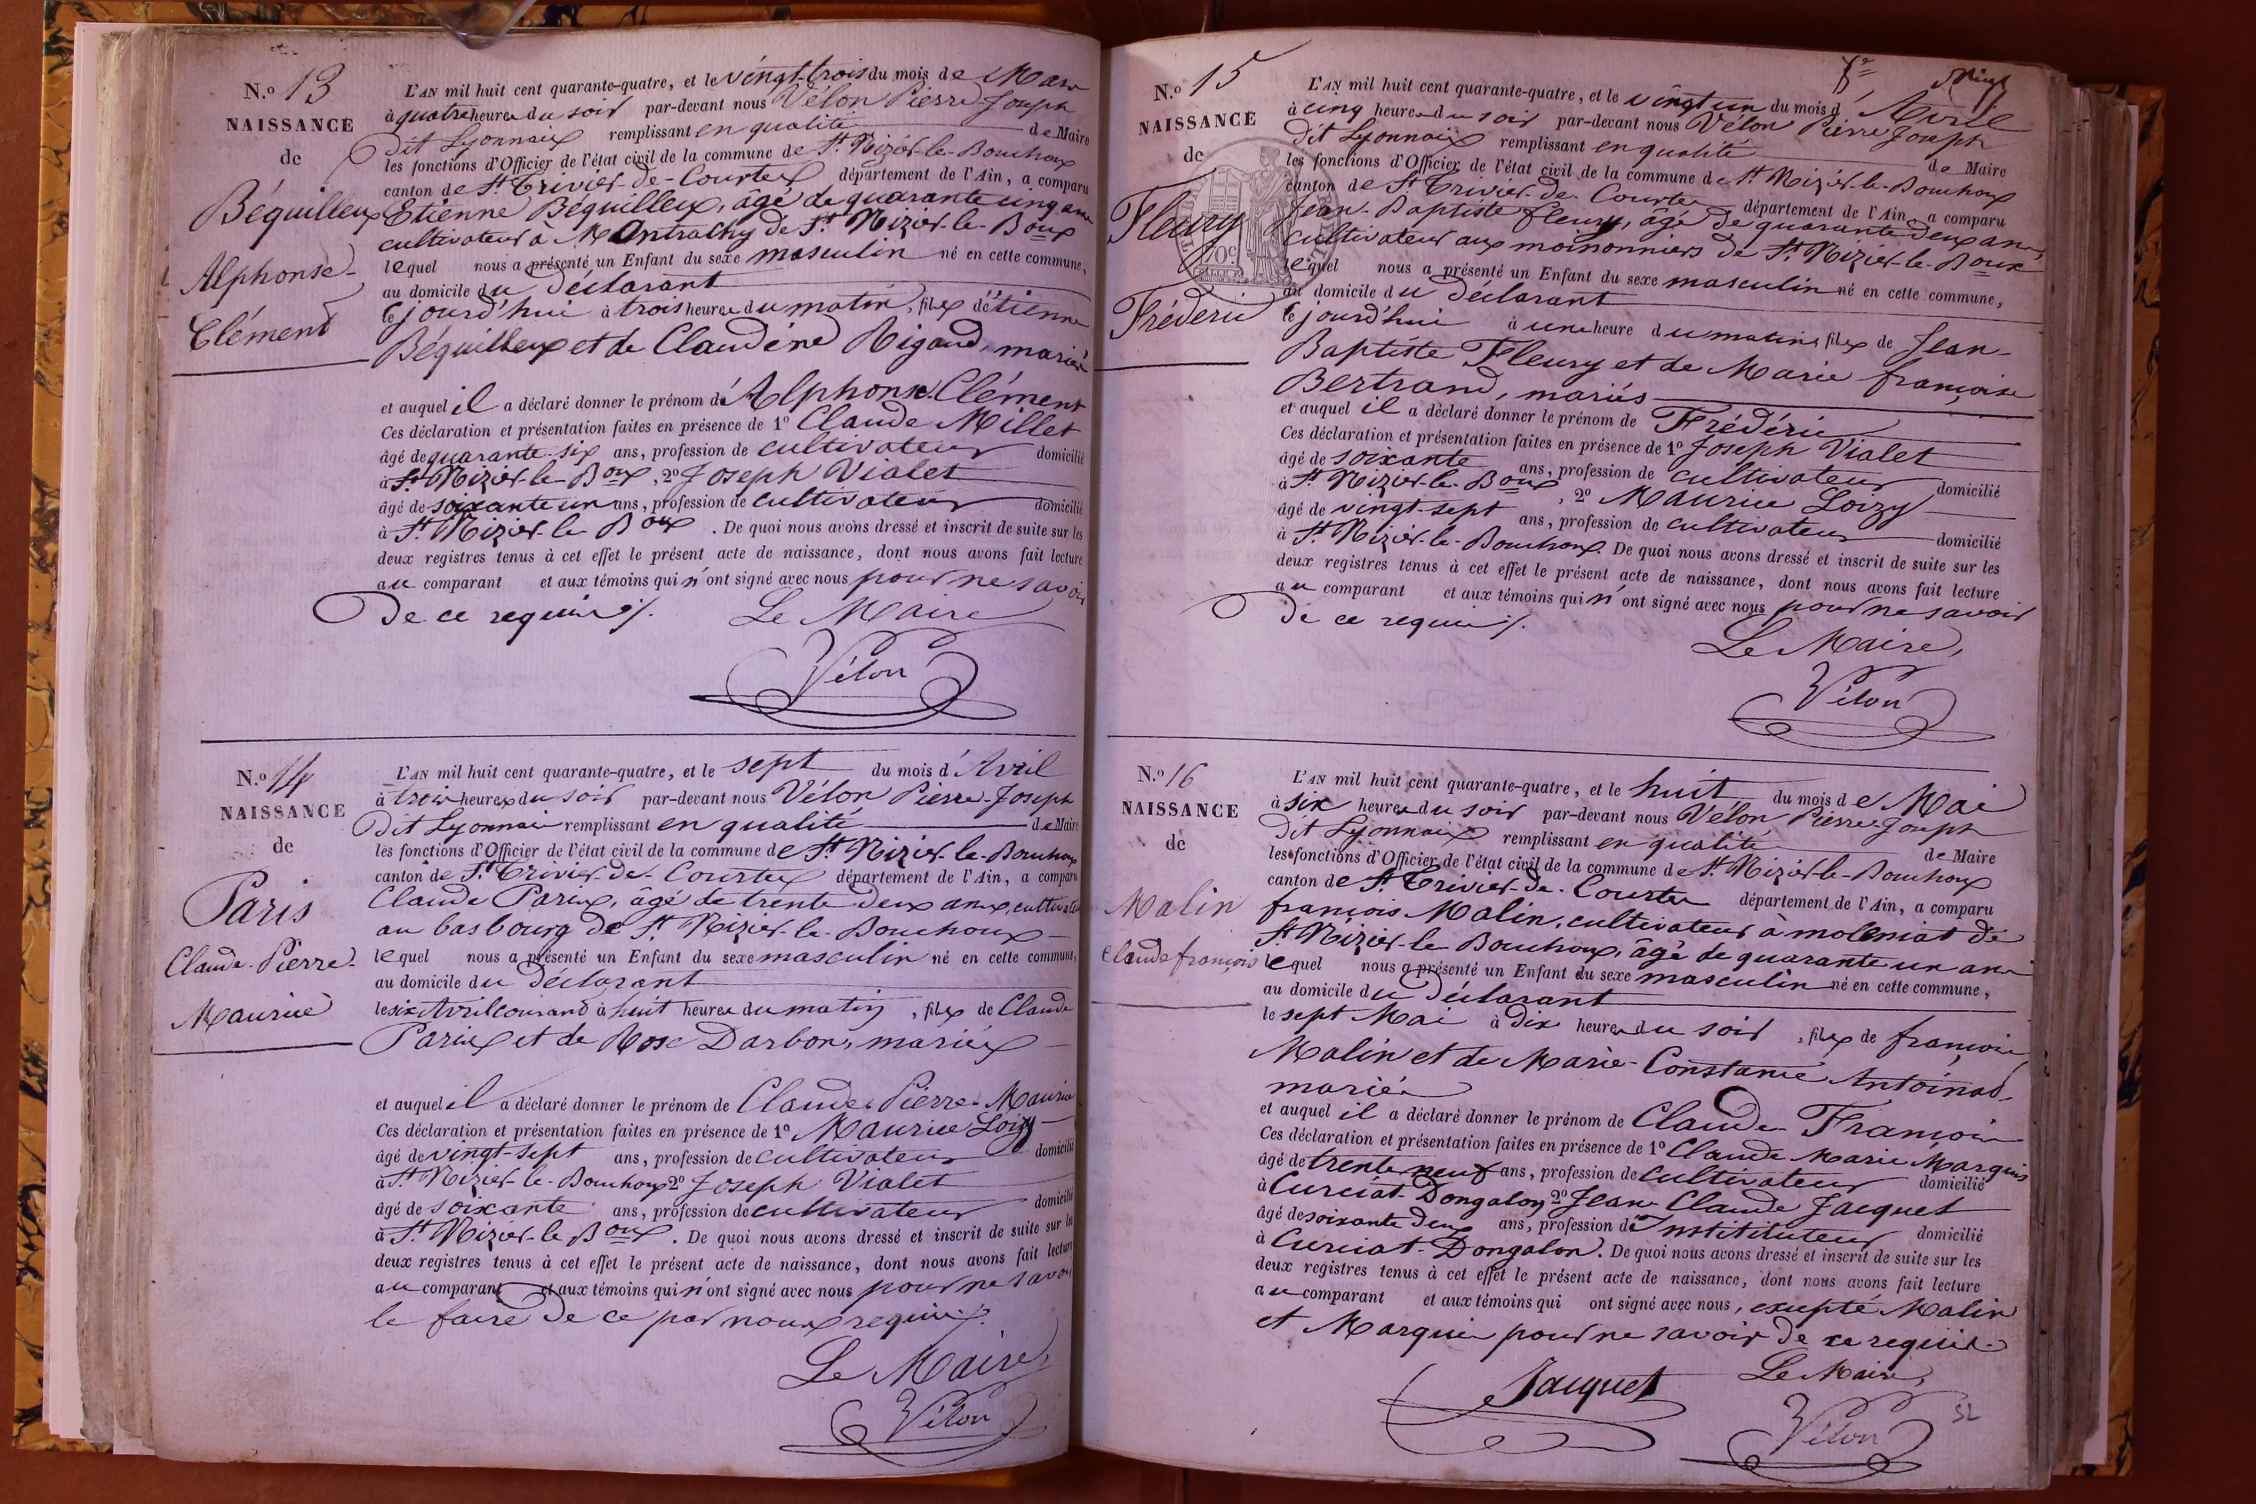 N.º 13
NAISSANCE
de
Béquilleux
Alphonse-
Clément
L'AN mil huit cent quarante-quatre, et le vingt-trois du mois de Mars
à quatre heures du soir par-devant nous Vélon Pierre Joseph
dit Lyonnais remplissant en qualité de Maire
les fonctions d'Officier de l'état civil de la commune de St. Nizier-le-Bouchoux
canton de St. Trivier-de-Courtes département de l'Ain, a comparu
Etienne Béquilleux, âgé de quarante cinq ans
cultivateur à Montrachy de St. Nizier-le-Boux
lequel nous a présenté un Enfant du sexe masculin né en cette commune,
au domicile du déclarant
cejourd'hui à trois heures du matin, fils d'étienne
Béquilleux et de Claudine Rigaud, mariés
et auquel il a déclaré donner le prénom d'Alphonse Clément
Ces déclaration et présentation faites en présence de 1º Claude Millet
âgé de quarante-six ans, profession de cultivateur domicilié
à St. Nizier-le-Boux, 2º Joseph Vialet
âgé de soixante un ans, profession de cultivateur domicilié
à St. Nizier-le-Boux. De quoi nous avons dressé et inscrit de suite sur les
deux registres tenus à cet effet le présent acte de naissance, dont nous avons fait lecture
au comparant et aux témoins qui n'ont signé avec nous pour ne savoir
de ce requis ./.
Le Maire
Vélon
N.º 14
NAISSANCE
de
Paris
Claude-Pierre-
Maurice
L'AN mil huit cent quarante-quatre, et le sept du mois d'Avril
à trois heures du soir par-devant nous Vélon Pierre-Joseph
dit Lyonnais remplissant en qualité de Maire
les fonctions d'Officier de l'état civil de la commune de St. Nizier-le-Bouchoux
canton de St. Trivier-de-Courtes département de l'Ain, a comparu
Claude Paris, âgé de trente deux ans, cultivateur
au bas bourg de St. Nizier-le-Bouchoux
lequel nous a présenté un Enfant du sexe masculin né en cette commune,
au domicile du déclarant
le six Avril courand à huit heures du matin, fils de Claude
Paris et de Rose Darbon, mariés
et auquel il a déclaré donner le prénom de Claude Pierre-Maurice
Ces déclaration et présentation faites en présence de 1º Maurice Loizy
âgé de vingt-sept ans, profession de cultivateur domicilié
à St. Nizier-le-Bouchoux 2º Joseph Vialet
âgé de soixante ans, profession de cultivateur domicilié
à St. Nizier-le-Boux. De quoi nous avons dressé et inscrit de suite sur les
deux registres tenus à cet effet le présent acte de naissance, dont nous avons fait lecture
au comparant et aux témoins qui n'ont signé avec nous pour ne savoir
le faire de ce par nous requis ./.
Le Maire,
Vélon
N.º 15
NAISSANCE
de
Fleury
Frédéric
L'AN mil huit cent quarante-quatre, et le vingt un du mois d'Avril
à cinq heures du soir par-devant nous Vélon Pierre Joseph
dit Lyonnais remplissant en qualité de Maire
les fonctions d'Officier de l'état civil de la commune de St. Nizier-le-Bouchoux
canton de St. Trivier-de-Courtes département de l'Ain, a comparu
Jean-Baptiste fleury, âgé de quarante deux ans,
cultivateur aux moinonniers de St. Nizier-le-Boux
lequel nous a présenté un Enfant du sexe masculin né en cette commune,
au domicile du déclarant
cejourd'hui à une heure du matin, fils de Jean-
Baptiste Fleury et de Marie françoise
Bertrand, mariés
et auquel il a déclaré donner le prénom de Frédéric
Ces déclaration et présentation faites en présence de 1º Joseph Vialet
âgé de soixante ans, profession de cultivateur domicilié
à St. Nizier-le-Boux, 2º Maurice Loizy
âgé de vingt-sept ans, profession de cultivateur domicilié
à St. Nizier-le-Bouchoux. De quoi nous avons dressé et inscrit de suite sur les
deux registres tenus à cet effet le présent acte de naissance, dont nous avons fait lecture
au comparant et aux témoins qui n'ont signé avec nous pour ne savoir
de ce requis ./.
Le Maire,
Vélon
N.º 16
NAISSANCE
de
Malin
Claude françois
L'AN mil huit cent quarante-quatre, et le huit du mois de Mai
à six heures du soir par-devant nous Vélon Pierre Joseph
dit Lyonnais remplissant en qualité de Maire
les fonctions d'Officier de l'état civil de la commune de St. Nizier-le-Bouchoux
canton de St. Trivier-de-Courtes département de l'Ain, a comparu
françois Malin, cultivateur à moleniat de
St. Nizier-le Bouchoux, âgé de quarante un ans
lequel nous a présenté un Enfant du sexe masculin né en cette commune,
au domicile du déclarant
le sept Mai à dix heures du soir, fils de françois
Malin et de Marie-Constance Antoinad,
mariés
et auquel il a déclaré donner le prénom de Claude François
Ces déclaration et présentation faites en présence de 1º Claude Marie Marquis
âgé de trente neuf ans, profession de cultivateur domicilié
à Curciat-Dongalon, 2º Jean Claude Jacquet
âgé de soixante deux ans, profession d'Instituteur domicilié
à Curciat-Dongalon. De quoi nous avons dressé et inscrit de suite sur les
deux registres tenus à cet effet le présent acte de naissance, dont nous avons fait lecture
au comparant et aux témoins qui ont signé avec nous, excepté Malin
et Marquis pour ne savoir de ce requis.
Jacquet
Le Maire,
Vélon
52